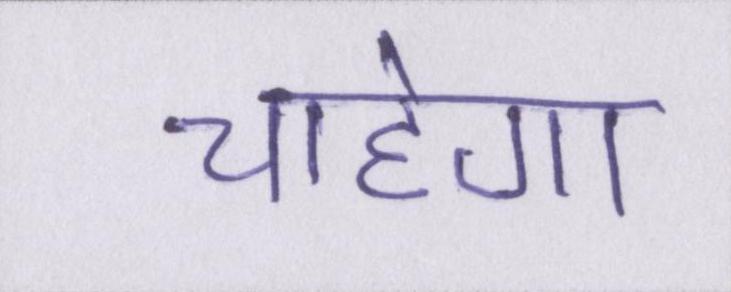 चाहेगा